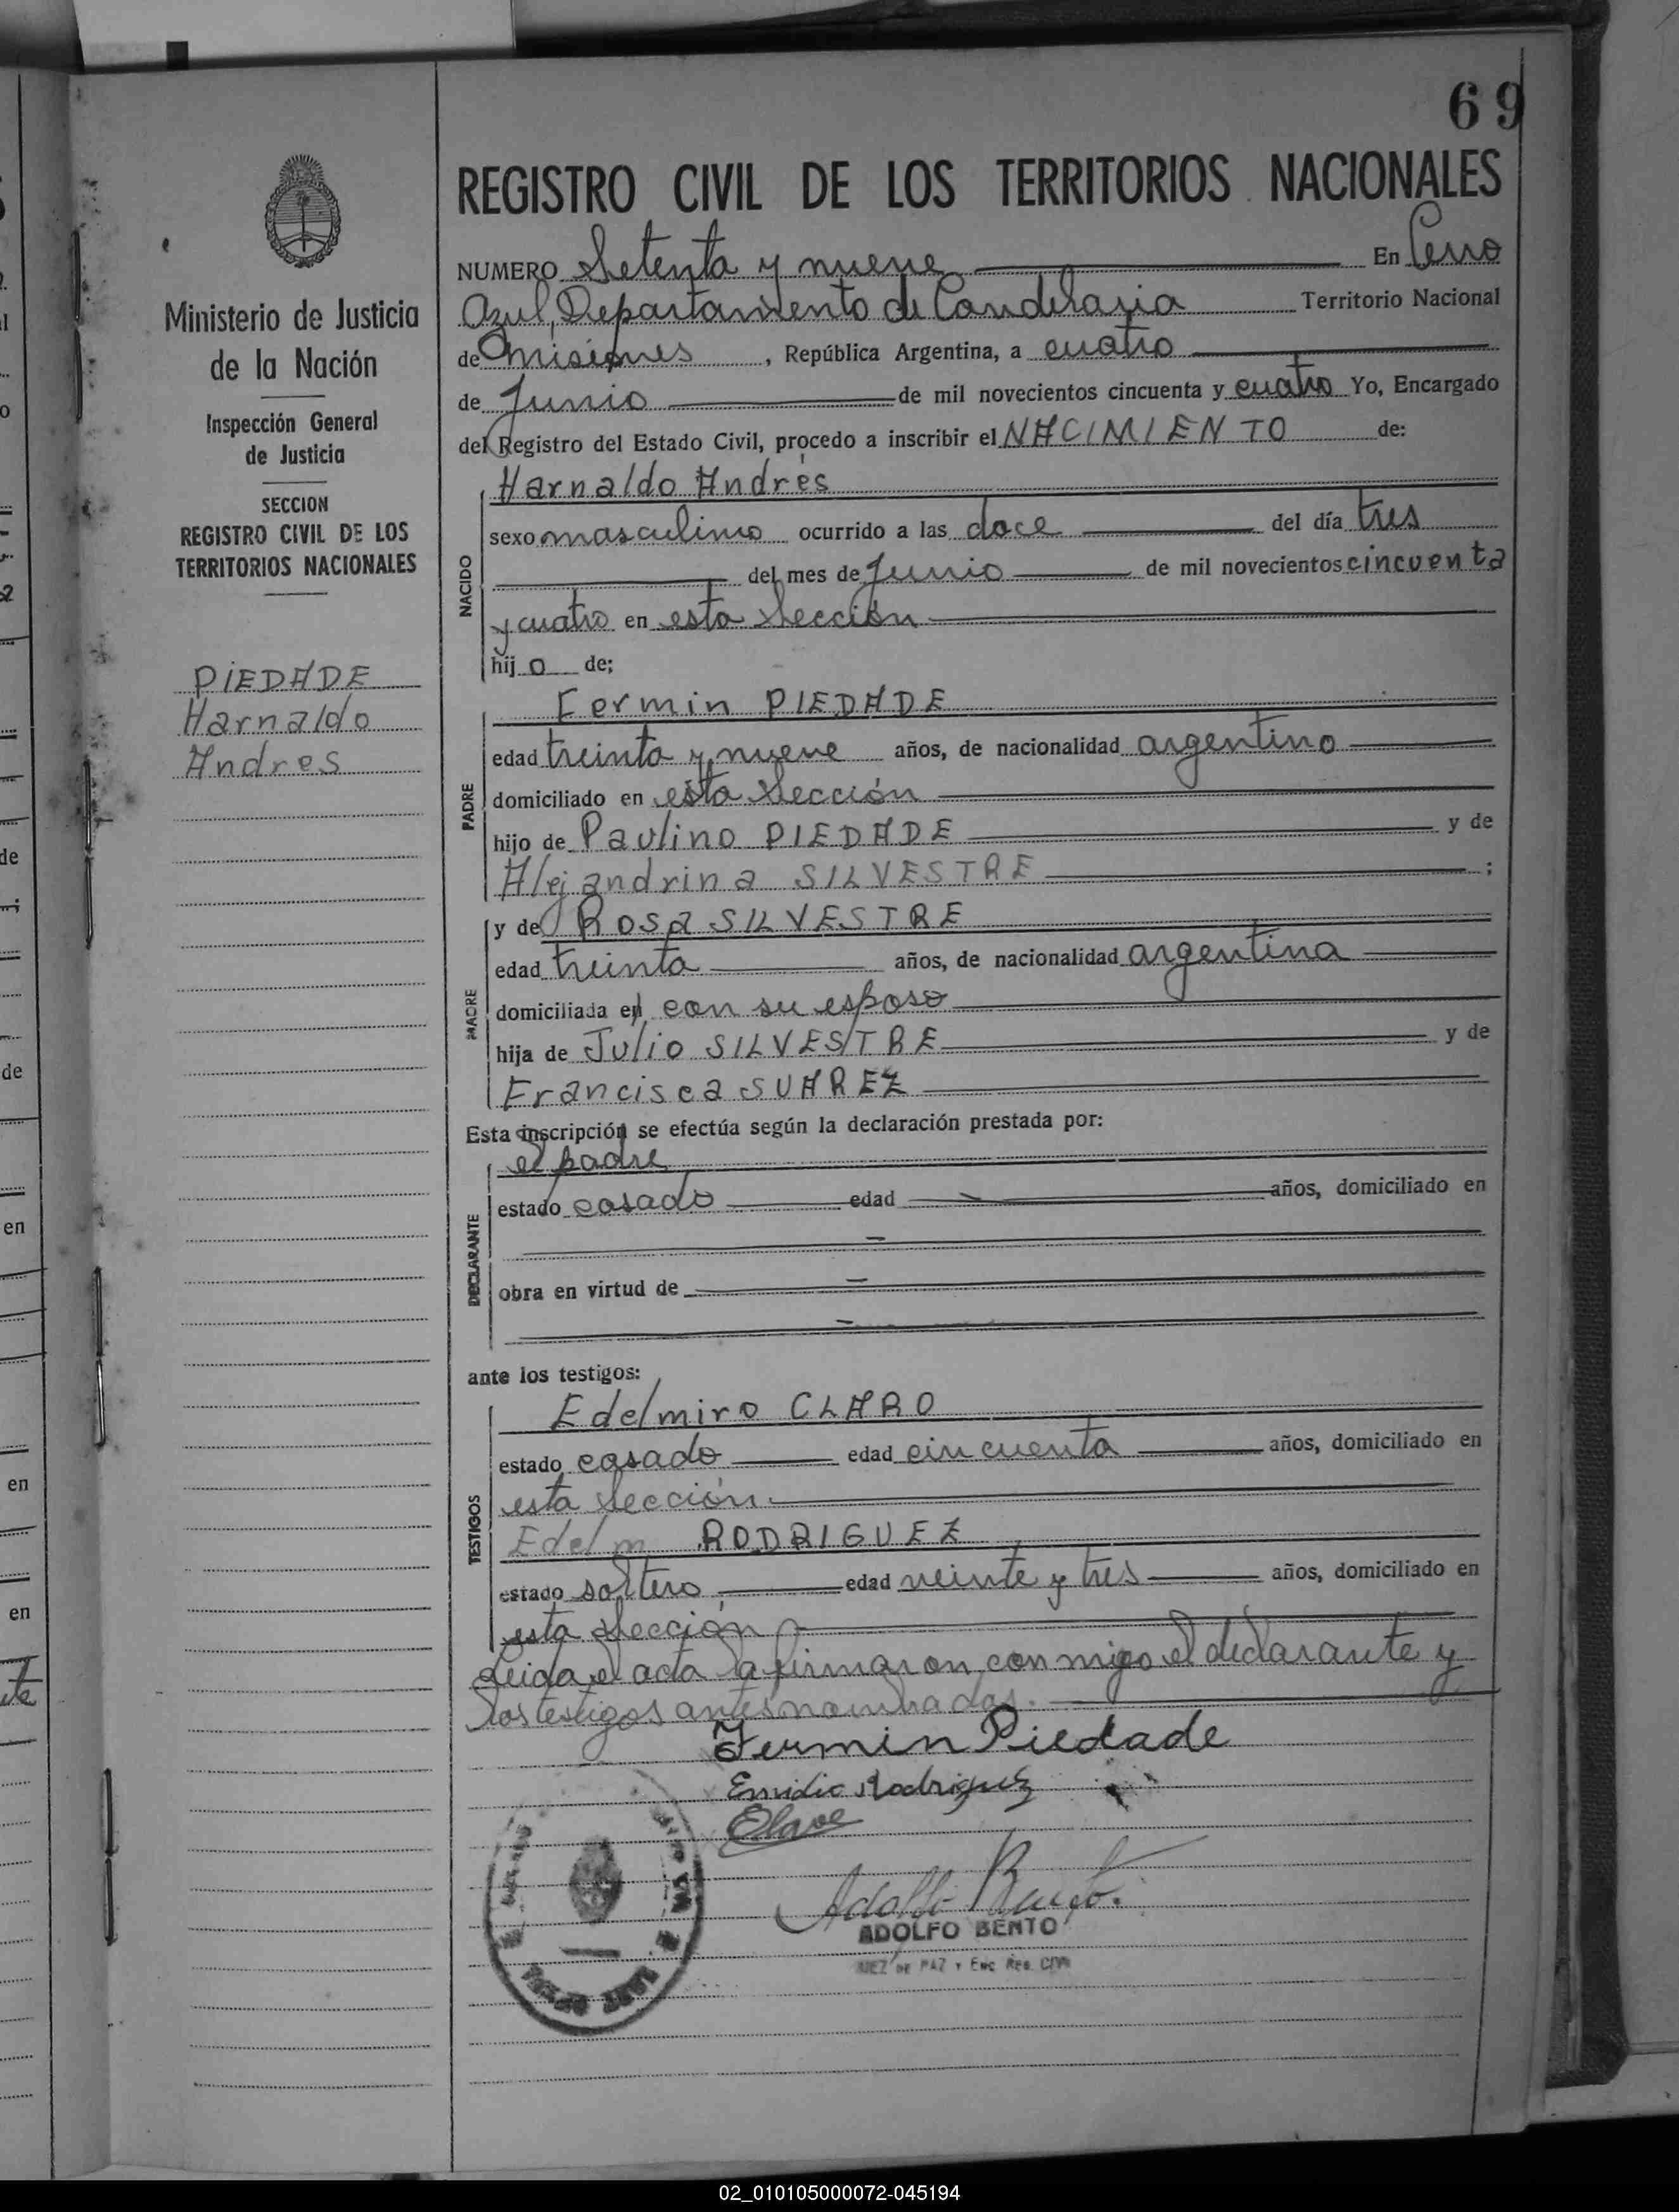 69
REGISTRO CIVIL DE LOS TERRITORIOS NACIONALES
NUMERO Setenta y nueve En Cerro
Azul, Departamiento de Candelaria Territorio Nacional
de Misiones, República Argentina, a cuatro
de Junio de mil novecientos cincuenta y cuatro Yo, Encargado
del Registro del Estado Civil, procedo a inscribir el NACIMIENTO de:
Ministerio de Justicia
de la Nación
Inspección General
de Justicia
SECCION
REGISTRO CIVIL DE LOS
TERRITORIOS NACIONALES
PIEDADE
Harnaldo
Andres
NACIDO
Harnaldo Andrés
sexo masculino ocurrido a las doce del día tres
del mes de Junio de mil novecientos cincuenta
y cuatro en esta Sección
hijo de;
PADRE
Fermin PIEDADE
edad treinta y nueve años, de nacionalidad argentino
domiciliado en esta Sección
hijo de Paulino PIEDADE y de
Alejandrina SILVESTRE ;
MADRE
y de Rosa SILVESTRE
edad treinta años, de nacionalidad argentina
domiciliada en con su esposo
hija de Julio SILVESTRE y de
Francisca SUAREZ
Esta inscripción se efectúa según la declaración prestada por:
DECLARANTE
el padre
estado casado edad años, domiciliado en
obra en virtud de
ante los testigos:
TESTIGOS
Edelmiro CLARO
estado casado edad cincuenta años, domiciliado en
esta Sección.
Edelm RODRIGUEZ
estado soltero edad veinte y tres años, domiciliado en
esta Sección
Leida el acta la firmaron conmigo el declarante y
los testigos antes nombrados.
Fermin Piedade
Emidio Rodriguez
Adolfo Bento
ADOLFO BENTO
JUEZ DE PAZ Y ENC. REG. CIVIL
02_010105000072-045194